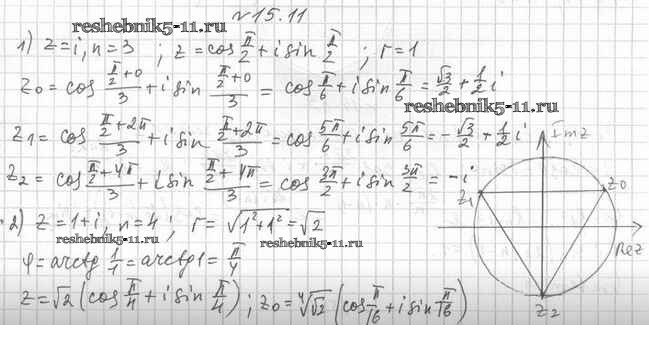 №15.11
reshebnik5-11.ru
1) z=i, n=3 ; z=cos π/2 + i sin π/2 ; r=1
z0 = cos (π/2+0)/3 + i sin (π/2+0)/3 = cos π/6 + i sin π/6 = √3/2 + 1/2 i
reshebnik5-11.ru
z1 = cos (π/2+2π)/3 + i sin (π/2+2π)/3 = cos 5π/6 + i sin 5π/6 = -√3/2 + 1/2 i
z2 = cos (π/2+4π)/3 + i sin (π/2+4π)/3 = cos 3π/2 + i sin 3π/2 = -i
Im z
z1
z0
Re z
z2
2) z=1+i, n=4 ; r=√(1²+1²)=√2
reshebnik5-11.ru
reshebnik5-11.ru
φ=arctg 1/1=arctg 1=π/4
z=√2 (cos π/4 + i sin π/4) ; z0=⁴√√2 (cos π/16 + i sin π/16)